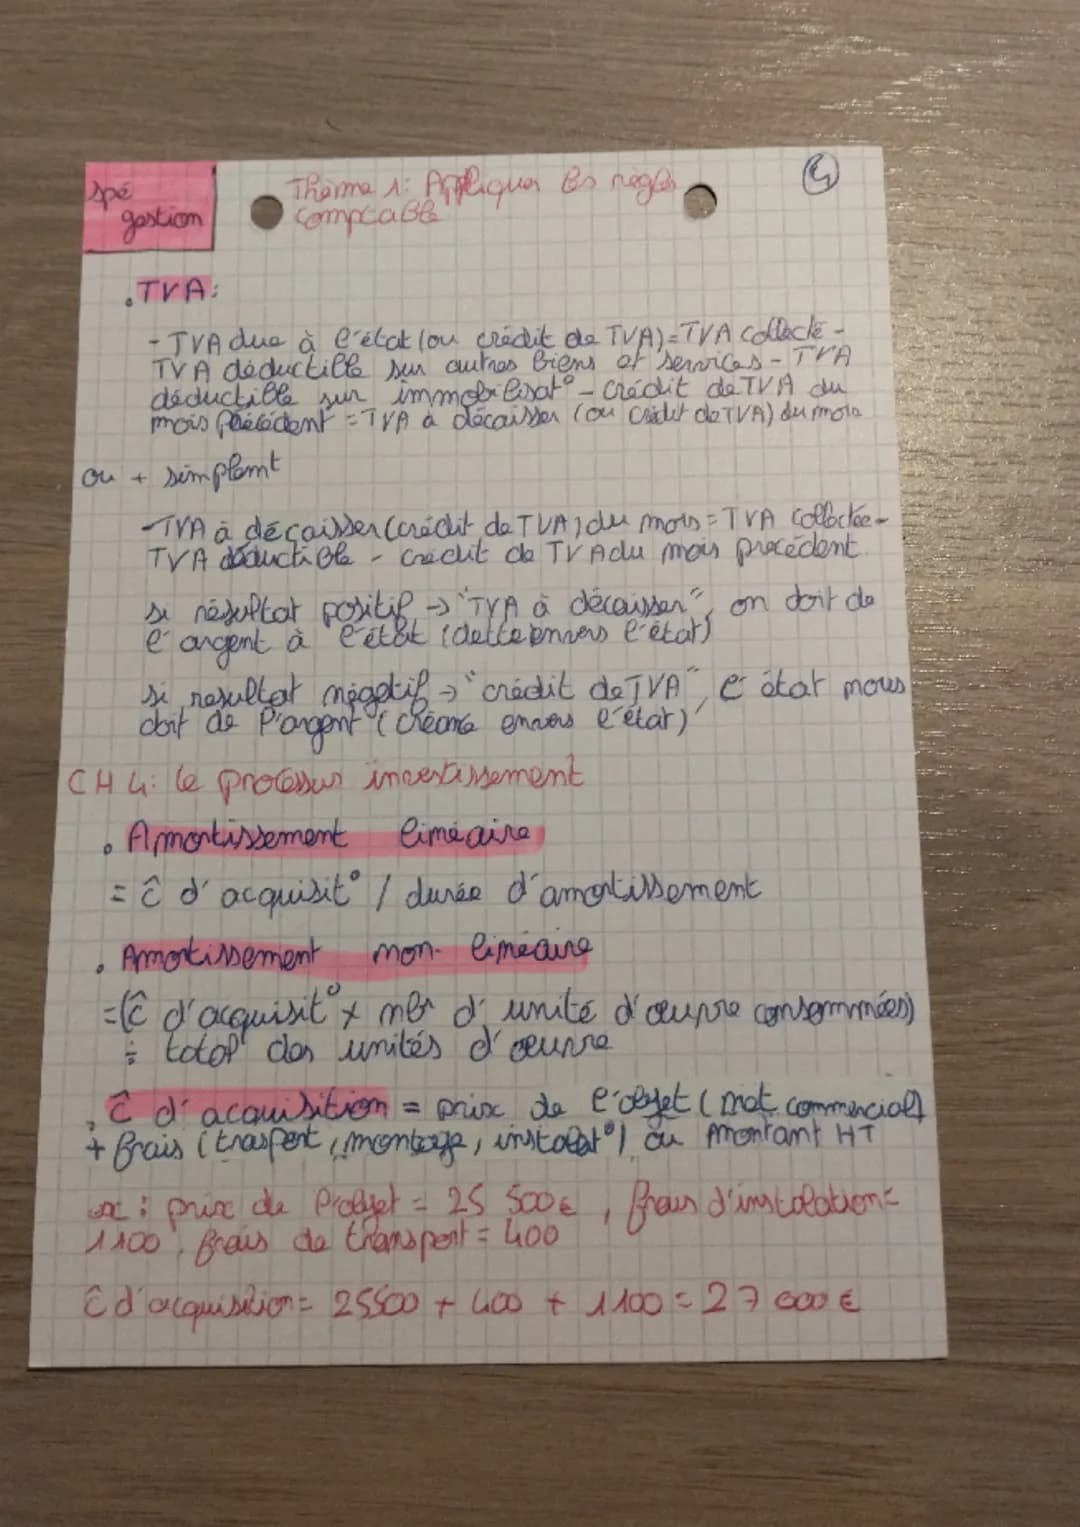 Spé
gestion
Thème 1: Appliquer les règles
comptable
• TVA:
- TVA due à l'état (ou crédit de TVA) = TVA collecté -
TVA déductible sur autres biens et services - TVA
déductible sur immobilisat° - crédit de TVA du
mois précédent = TVA à décaisser (ou crédit de TVA) du mois
ou + simplemt
- TVA à décaisser (crédit de TVA) du mois = TVA collectée -
TVA déductible - crédit de TVA du mois précédent.
si résultat positif → "TVA à décaisser", on doit de
l'argent à l'état (dette envers l'état)
si resultat négatif → "crédit de TVA", l'état nous
doit de l'argent (créance envers l'état)
CH 4: le processus investissement
• Amortissement linéaire
= ĉ d'acquisit° / durée d'amortissement
• Amortissement non-linéaire
= (ĉ d'acquisit° x nbr d'unité d'œuvre consommées)
÷ total des unités d'œuvre
• ĉ d'acquisition = prix de l'objet (net commercial)
+ frais (trasport, montage, installat°) ou montant HT
ex : prix de l'objet = 25 500€, frais d'instalation =
1100, frais de transport = 400
ĉ d'acquisition = 25500 + 400 + 1100 = 27 000 €